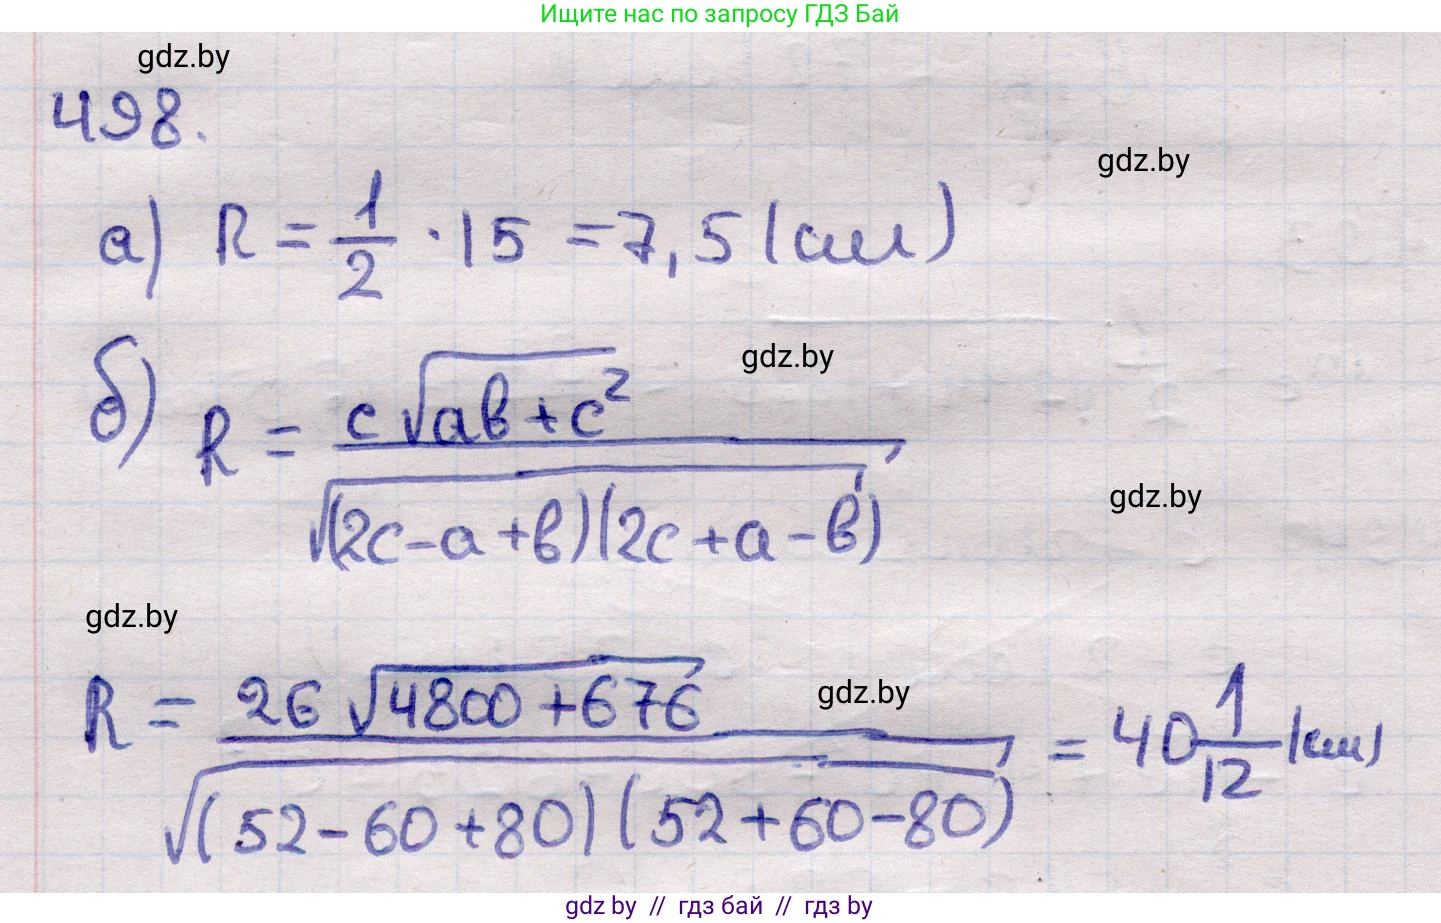 Ищите нас по запросу ГДЗ Бай
gdz.by
498.
gdz.by
а) R = 1/2 · 15 = 7,5 (см)
gdz.by
б) R = c√(ab+c²) / √((2c-a+b)(2c+a-b))
gdz.by
gdz.by
R = 26√(4800+676) / √((52-60+80)(52+60-80)) = 40 1/12 (см)
gdz.by
gdz.by // гдз бай // гдз by